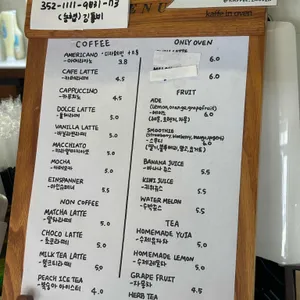 352-1111-9831-73
MENU
kaffe in oven
COFFEE
AMERICANO
-아메리카노 3.8
CAFE LATTE
-카페라떼 4.5
CAPPUCCINO
-카푸치노 4.5
DOLCE LATTE
-돌체라떼 5.0
VANILLA LATTE
-바닐라라떼 5.0
MACCHIATO
5.0
MOCHA
-카페모카 5.0
EINSPANNER
-아인슈페너 5.5
NON COFFEE
MATCHA LATTE
-말차라떼 5.0
CHOCO LATTE
-초코라떼 5.0
MILK TEA LATTE
-밀크티라떼 5.0
PEACH ICE TEA
-복숭아 아이스티 4.0
ONLY OVEN
6.0
6.0
FRUIT
ADE
(lemon, orange, grapefruit)
-에이드
6.0
SMOOTHIE
-스무디
BANANA JUICE
-바나나 쥬스 5.5
KIWI JUICE
-키위쥬스 5.5
WATER MELON
-수박쥬스 5.5
TEA
HOMEMADE YUJA
-수제유자차 5.0
HOMEMADE LEMON
-수제레몬차 5.0
GRAPE FRUIT
-자몽차 4.5
HERB TEA